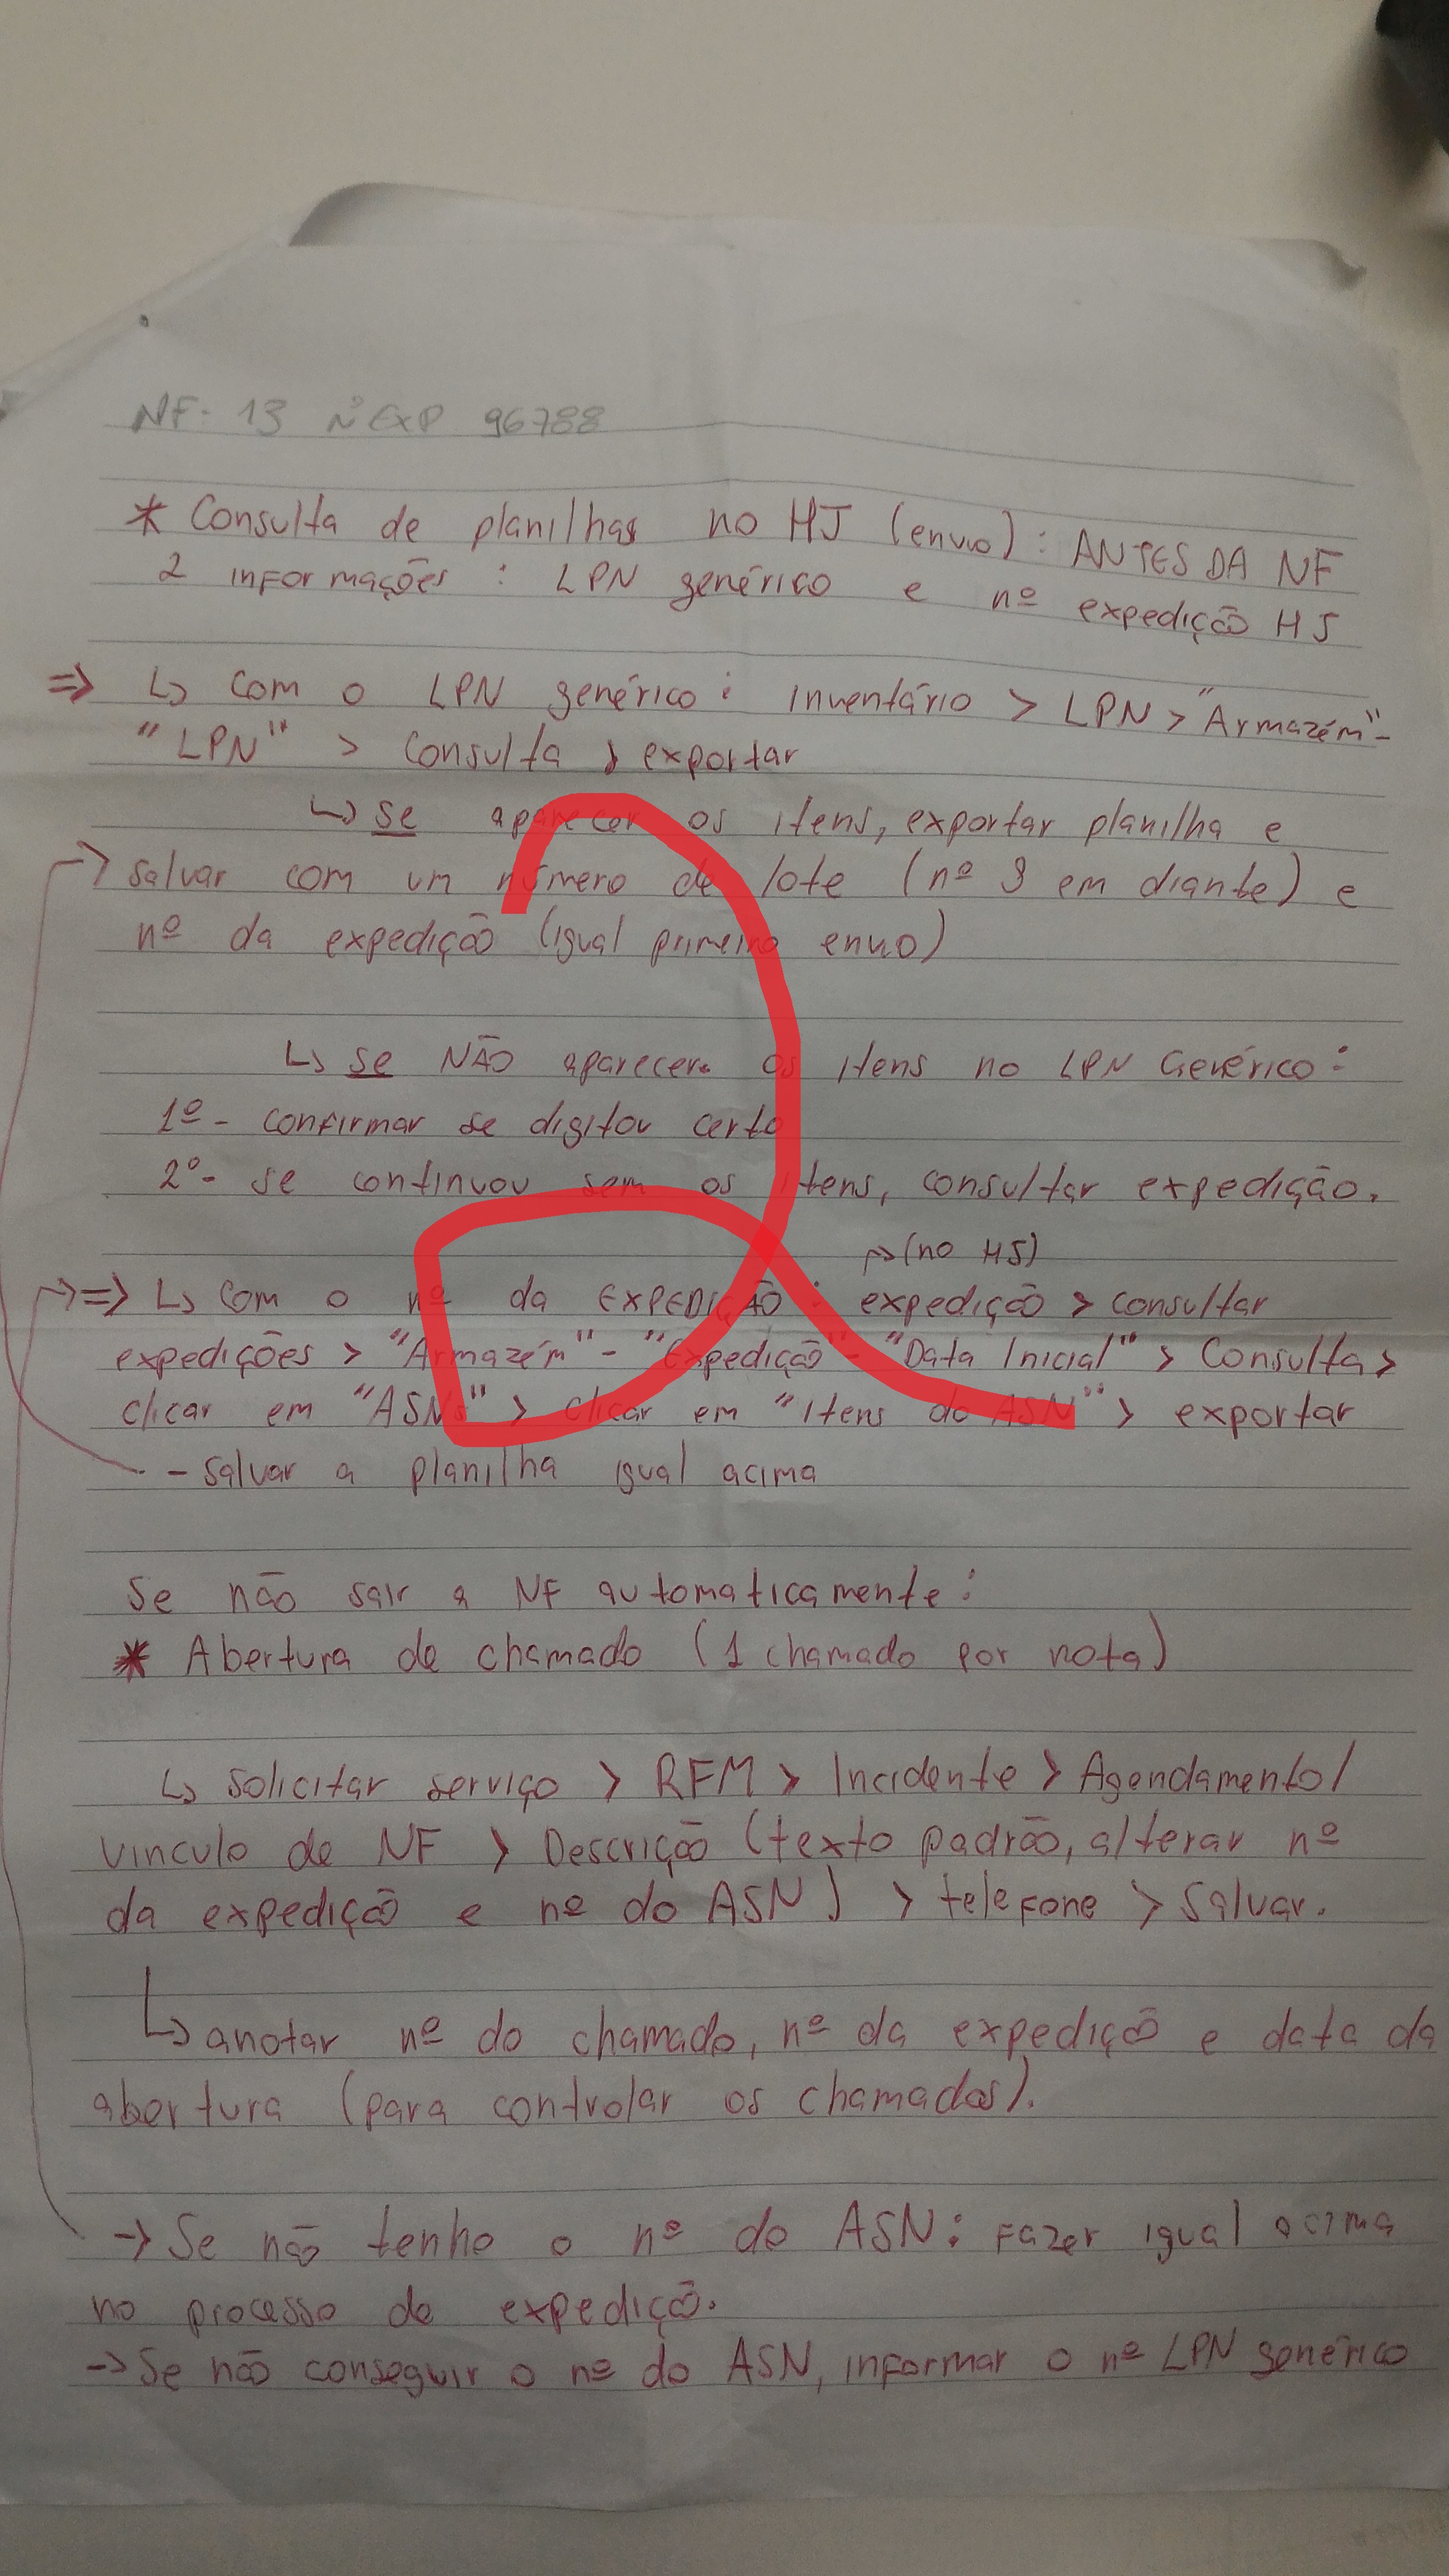 NF: 13 Nº EXP 96788
* Consulta de planilhas no HJ (envio): ANTES DA NF
2 informações : LPN genérico e nº expedição HJ
⇒ ↳ com o LPN genérico: Inventário > LPN > "Armazém" -
"LPN" > consulta > exportar
↳ se aparecer os itens, exportar planilha e
→ salvar com um número de lote (nº 3 em diante) e
nº da expedição (igual primeiro envio)
↳ se NÃO aparecer os itens no LPN Genérico:
1º - confirmar se digitou certo
2º - se continuou sem os itens, consultar expedição.
→ (no HJ)
→ ⇒ ↳ com o nº da EXPEDIÇÃO: expedição > consultar
expedições > "Armazém" - "Expedição" - "Data Inicial" > Consulta >
clicar em "ASNs" > clicar em "Itens do ASN" > exportar
- salvar a planilha igual acima
Se não sair a NF automaticamente:
* Abertura de chamado (1 chamado por nota)
↳ solicitar serviço > RFM > Incidente > Agendamento/
vinculo de NF > Descrição (texto padrão, alterar nº
da expedição e nº do ASN) > telefone > salvar.
↳ anotar nº do chamado, nº da expedição e data da
abertura (para controlar os chamados).
→ Se não tenho o nº do ASN: fazer igual acima
no processo de expedição.
→ Se não conseguir o nº do ASN, informar o nº LPN genérico
2